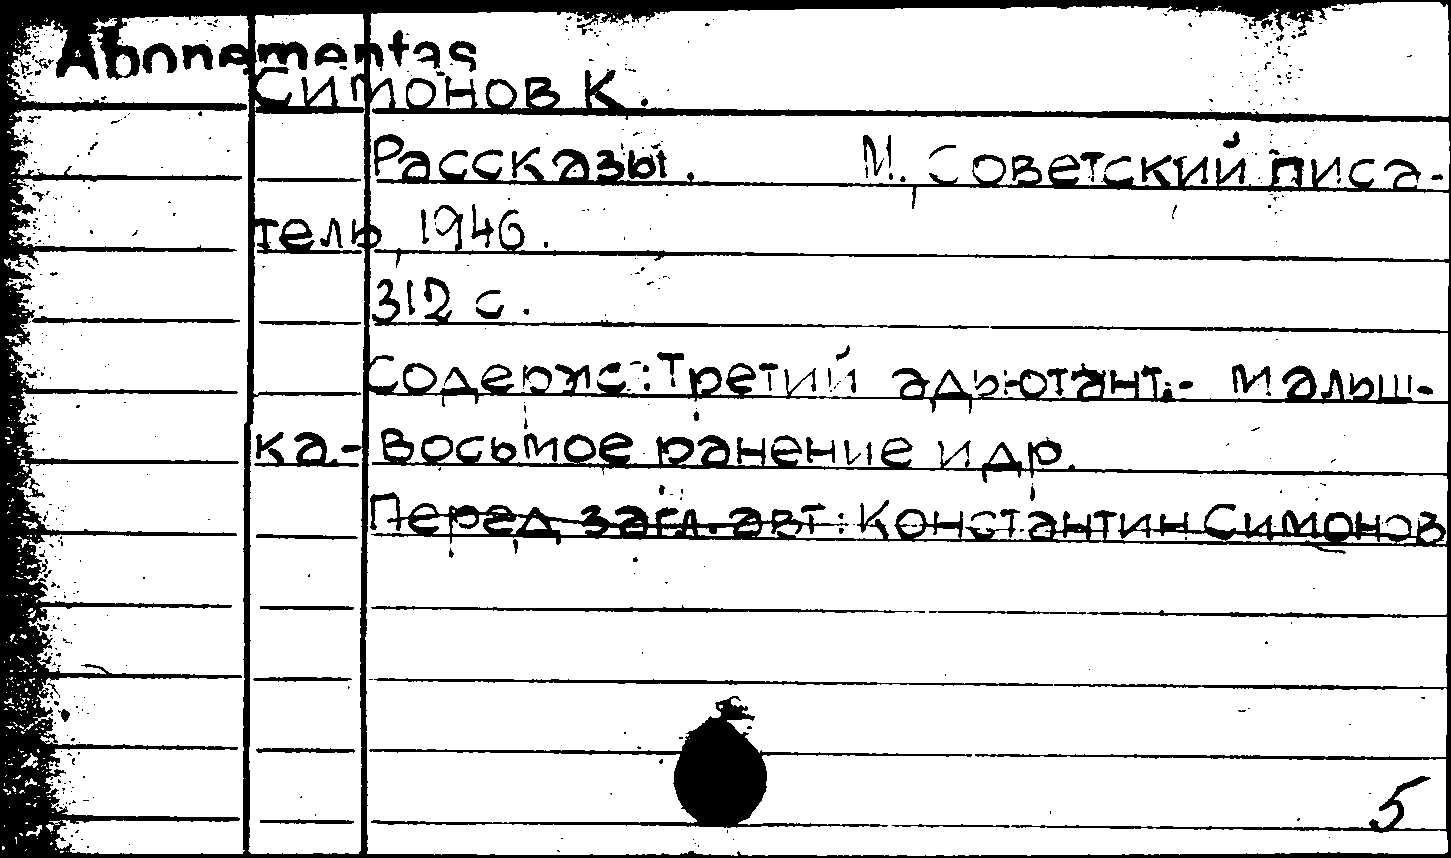 Abonementas
Симонов К.
Рассказы. М. Советский писа-
тель, 1946.
312 с.
Содерж.: Третий адъютант.- Малыш-
ка.- Восьмое ранение и др.
Перед загл. авт: Константин Симонов
5